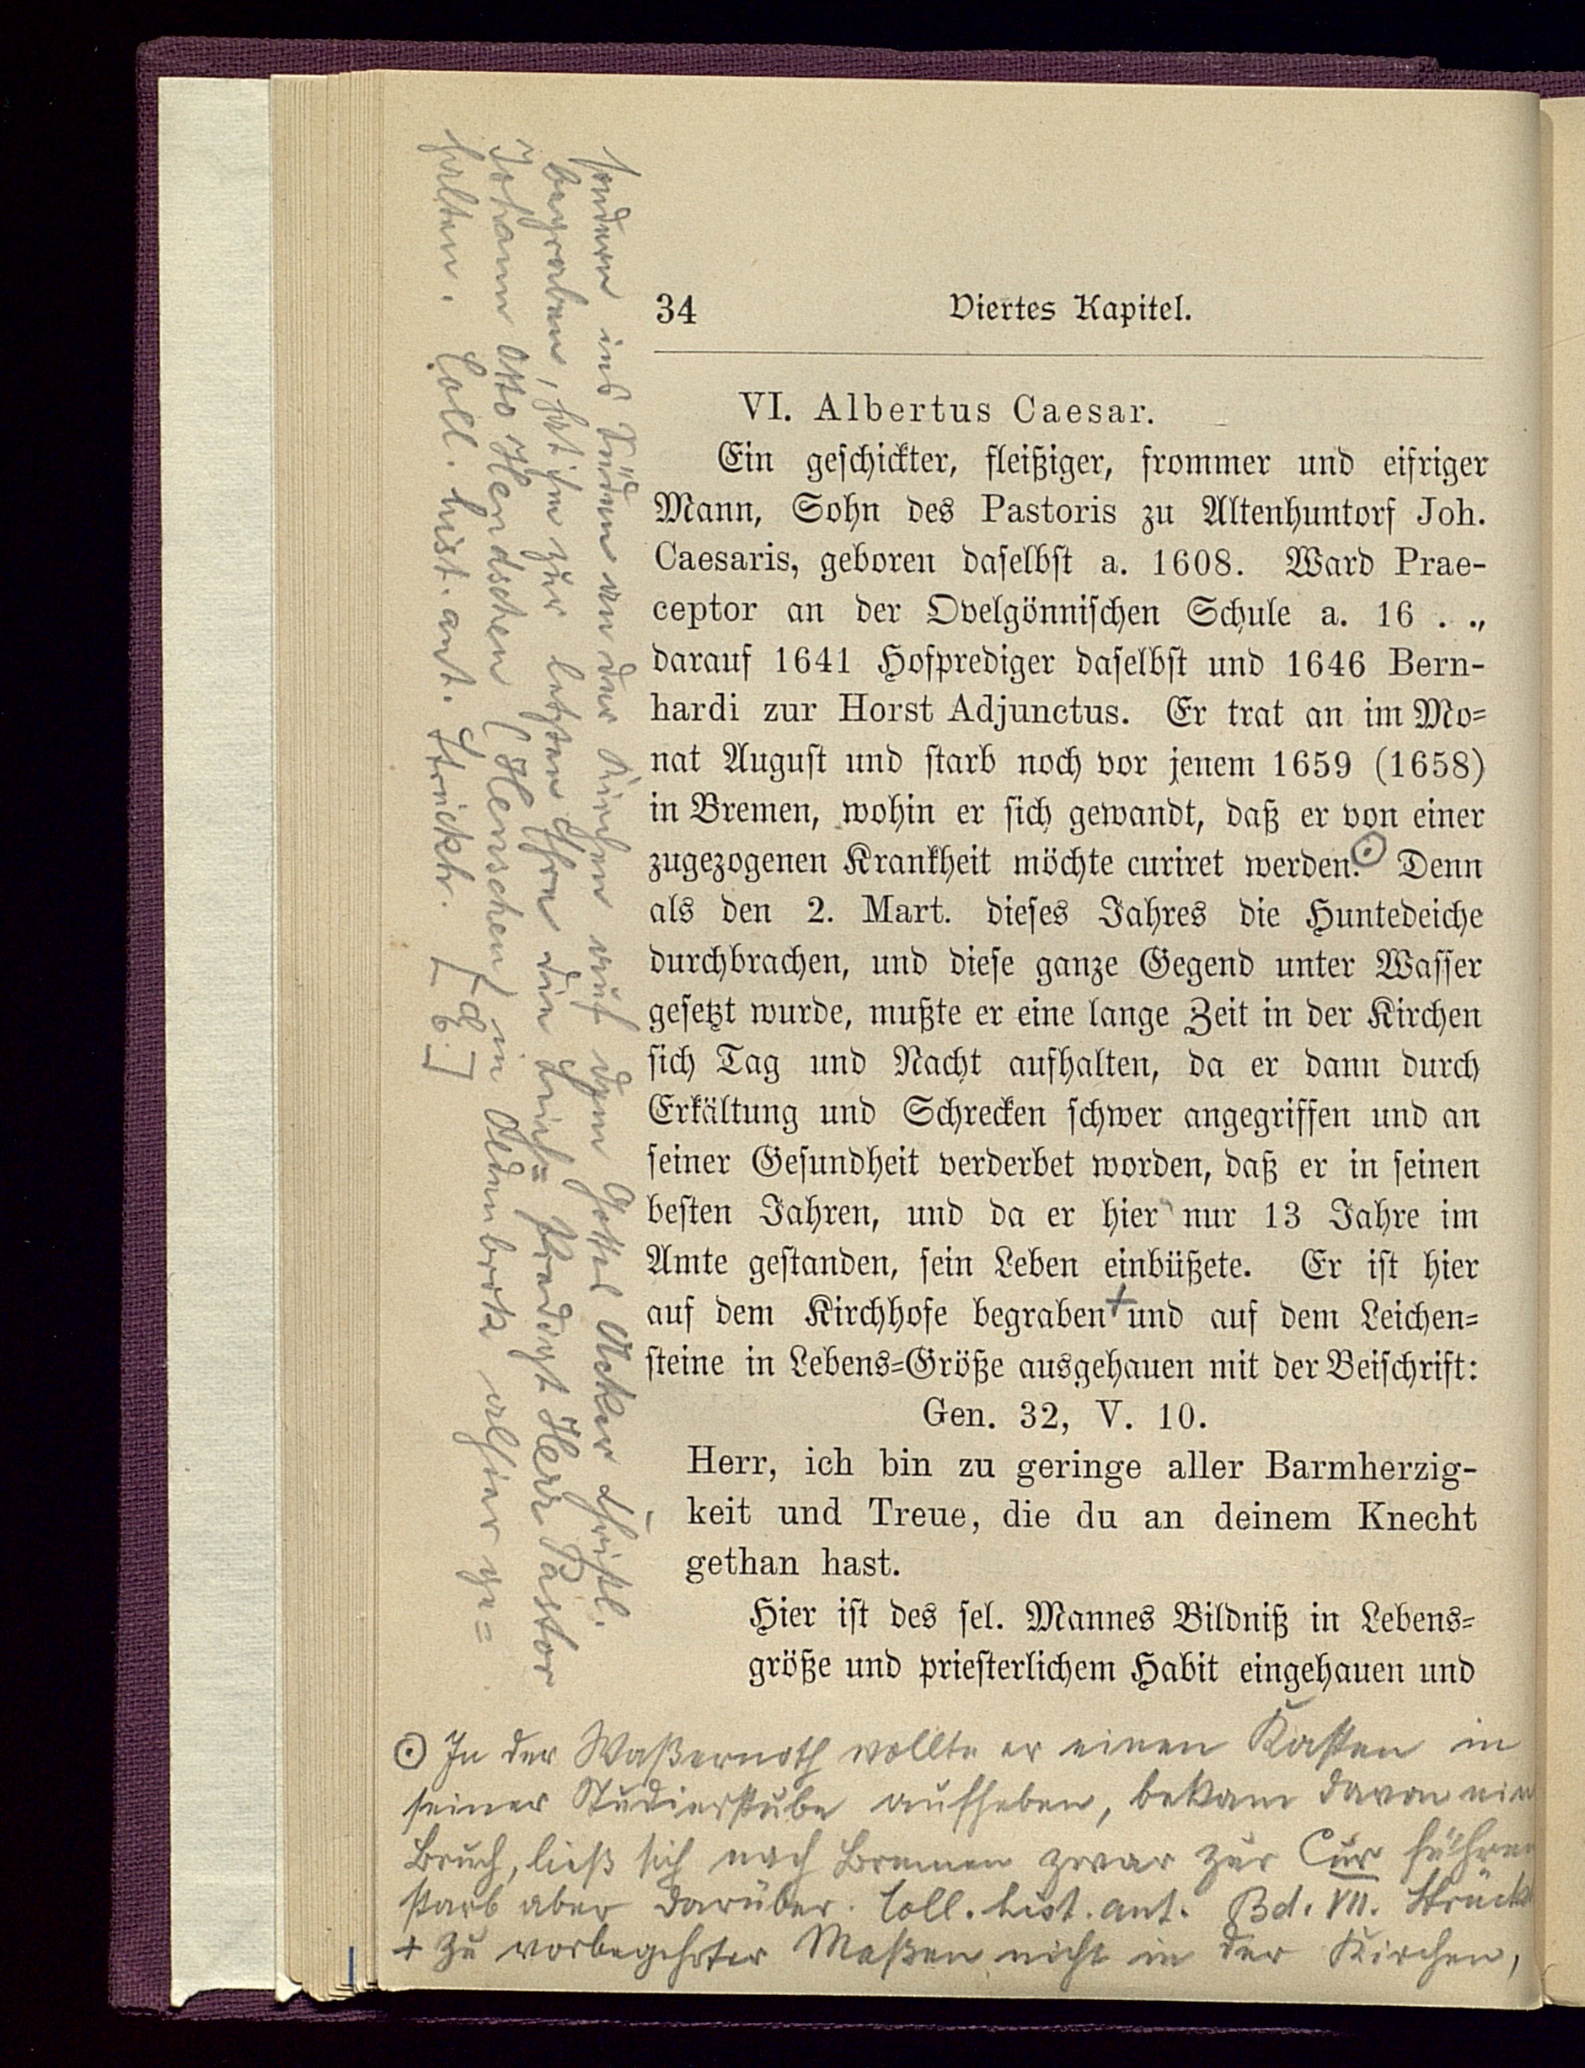 34 Viertes Kapitel.
VI. Albertus Caesar.
Ein geschickter, fleißiger, frommer und eifriger
Mann, Sohn des Pastoris zu Altenhuntorf Joh.
Caesaris, geboren daselbst a. 1608. Ward Prae-
ceptor an der Ovelgönnischen Schule a. 16 . .,
darauf 1641 Hofprediger daselbst und 1646 Bern-
hardi zur Horst Adjunctus. Er trat an im Mo-
nat August und starb noch vor jenem 1659 (1658)
in Bremen, wohin er sich gewandt, daß er von einer
zugezogenen Krankheit möchte curiret werden.⊙ Denn
als den 2. Mart. dieses Jahres die Huntedeiche
durchbrachen, und diese ganze Gegend unter Wasser
gesetzt wurde, mußte er eine lange Zeit in der Kirchen
sich Tag und Nacht aufhalten, da er dann durch
Erkältung und Schrecken schwer angegriffen und an
seiner Gesundheit verderbet worden, daß er in seinen
besten Jahren, und da er hier nur 13 Jahre im
Amte gestanden, sein Leben einbüßete. Er ist hier
auf dem Kirchhofe begraben + und auf dem Leichen-
steine in Lebens-Größe ausgehauen mit der Beischrift:
Gen. 32, V. 10.
Herr, ich bin zu geringe aller Barmherzig-
keit und Treue, die du an deinem Knecht
gethan hast.
Hier ist des sel. Mannes Bildniß in Lebens-
größe und priesterlichem Habit eingehauen und
⊙ In der Waßernoth wollte er einen Kasten in
seiner Studierstube aufheben, bekam davon ein
Bruch, ließ sich nach Bremen zwar zur Cur führen
starb aber darüber. Coll. hist. ant. Bd. VII. Strück
+ Zu vorbegehrter Maßen nicht in der Kirchen,
sondern ins Süden an der Kirchen auf dem Gottes Acker christl.
begraben, hat ihm zur letzten Ehre die Leich= Predigt Herr Pastor
Johann Otto Hendschen (Henschen) in Oldenbrok alhier ge=
halten. Coll. hist. ant. Strückh.